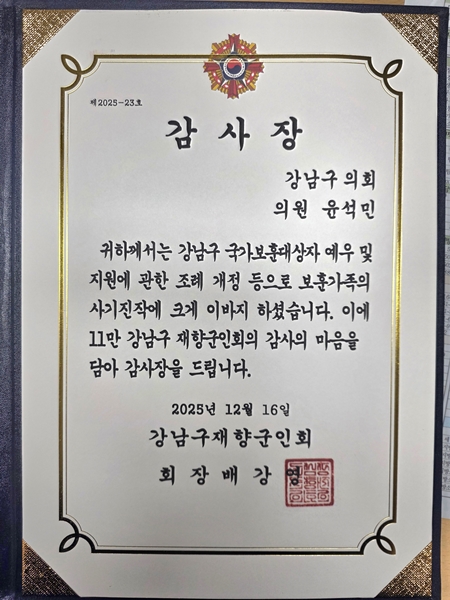 제2025-23호
감 사 장
강남구의회
의원 윤석민
귀하께서는 강남구 국가보훈대상자 예우 및
지원에 관한 조례 개정 등으로 보훈가족의
사기진작에 크게 이바지 하셨습니다. 이에
11만 강남구 재향군인회의 감사의 마음을
담아 감사장을 드립니다.
2025년 12월 16일
강남구재향군인회
회 장 배 강 영